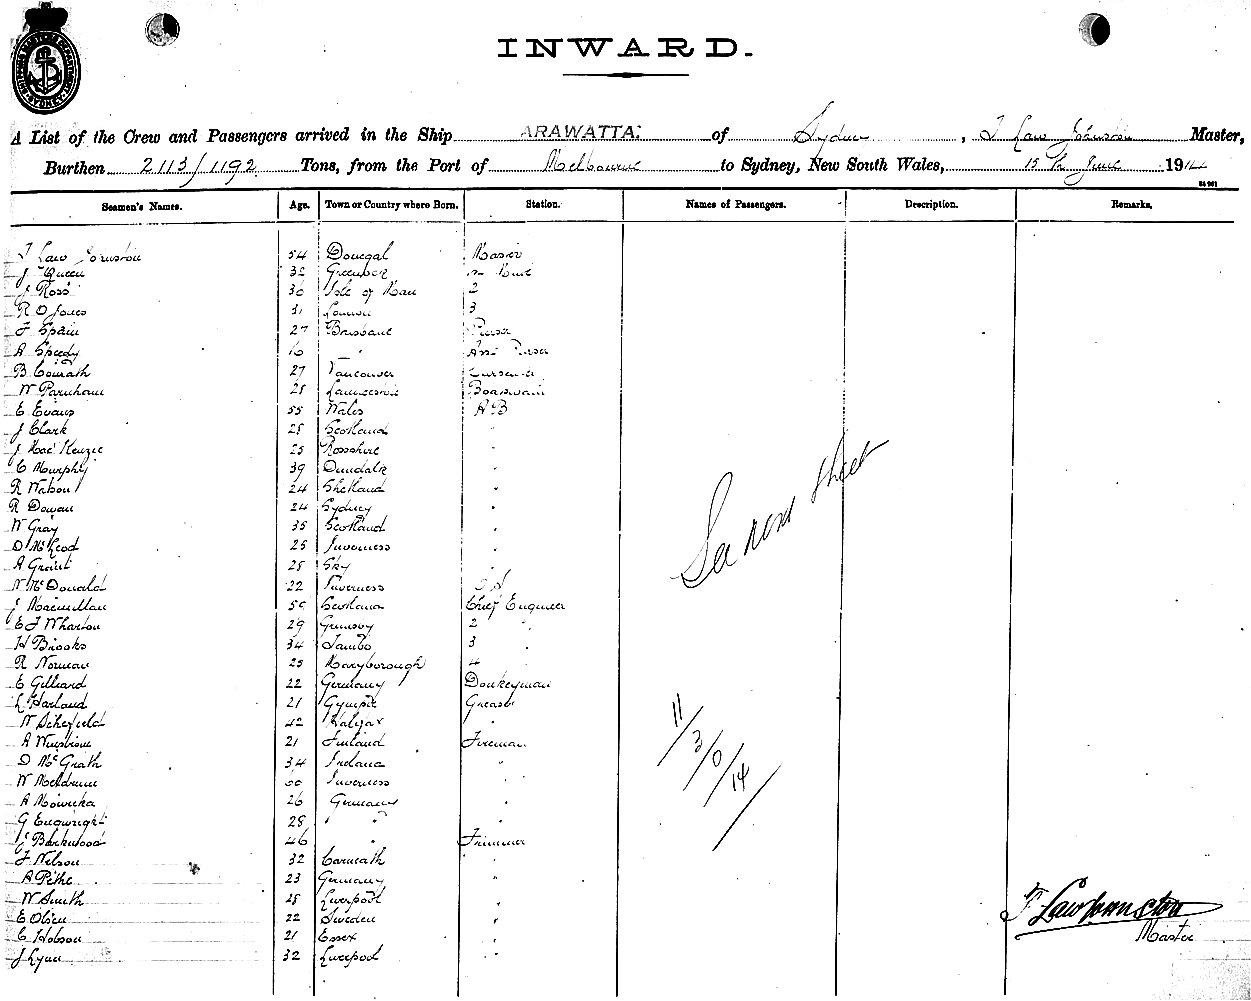 INWARD.
A List of the Crew and Passengers arrived in the Ship ARAWATTA. of Sydney, T Law Johnston Master,
Burthen 2113/1192 Tons, from the Port of Melbourne to Sydney, New South Wales, 15th June 1914
Seamen's Names. Age. Town or Country where Born. Station. Names of Passengers. Description. Remarks.
T Law Johnston 54 Donegal Master
J Queen 32 Greenock Mate
J Ross 36 Isle of Man 2
R O Jones 31 London 3
F Spain 27 Brisbane Purser
A Speedy 16 " Asst Purser
B Conrath 27 Vancouver
W Parnham 28 Boatswain
E Evans 55 Wales AB
J Clark 28 Scotland "
J MacKenzie 25 Rosshire "
C Murphy 39 Dundalk "
R Watson 24 Shetland "
R Dowan 24 Sydney "
W Gray 35 Scotland "
D McLeod 25 Inverness "
A Grant 28 Sky "
N McDonald 22 Inverness
J Macmillan 59 Scotland Chief Engineer
E J Wharton 29 Grimsby 2
H Brooks 34 Tambo 3
R Norman 25 Maryborough 4
E Gilliard 22 Germany Donkeyman
L Harland 21 Gympie Greaser
W Schofield 42 Halifax "
A 21 Finland Fireman
D McGrath 34 Ireland "
W 60 Inverness "
A 26 Germany "
G 28 " "
J 46 " Trimmer
F Nelson 32 "
A Pethe 23 Germany "
W Smith 28 Liverpool "
E Olsen 22 Sweden "
E Hobson 21 Essex "
J Lynn 32 Liverpool "
See next sheet
11/3/0/14
T Law Johnston
Master